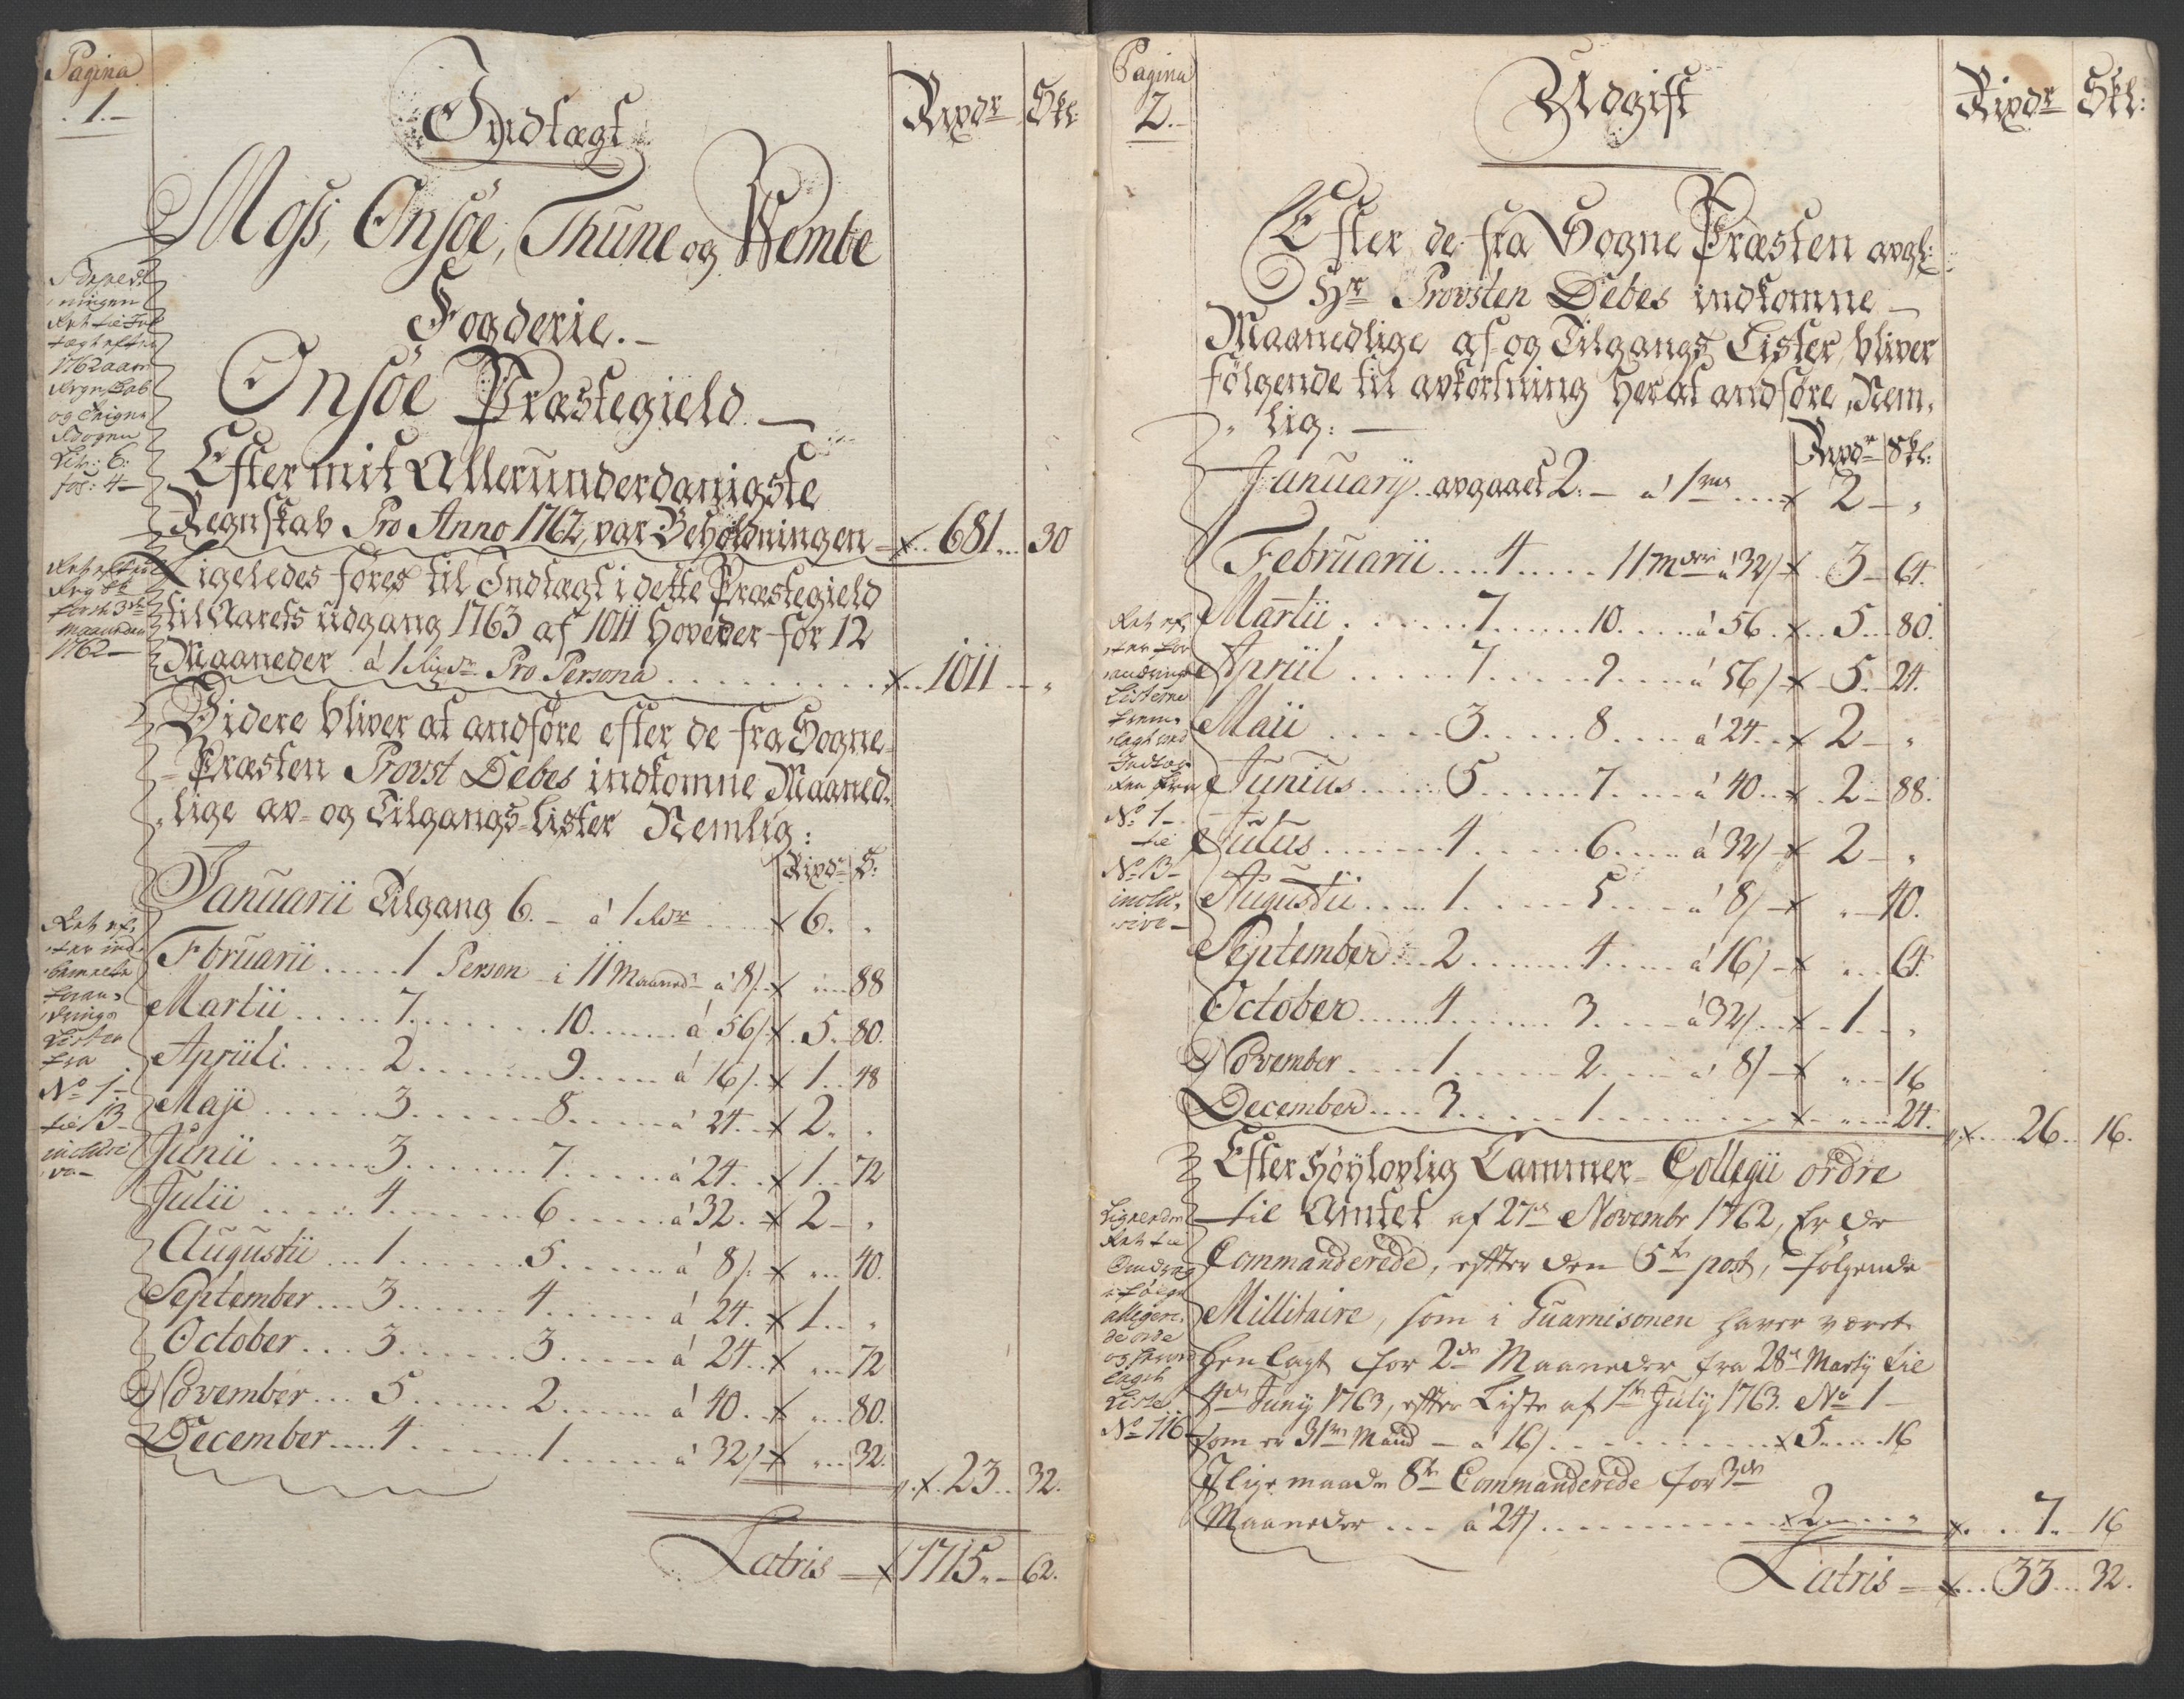 Pagina
1.
Indtægt
Rixdr Skl:
Moss, Onsöe, Thune og Wembe
Fogderie.
Onsöe Præstegield
Efter mit Allerunderdanigste
Regnskab Pro Anno 1762, var Beholdningen 681 30
Ligeledes föres til Indtægt i dette Præstegield
til Aarets udgang 1763 af 1011 Hoveder for 12
Maaneder á 1 Pro Persona 1011 "
Videre bliver at andföre efter de fra Sogne
Præsten Provst Debes indkomne Maaned
lige av- og Tilgangs-Lister Nemlig:
Rixdr S:
Januarii Tilgang 6. á 1 6. "
Februarii 1 Person i 11 Maaned á 8/ " 88
Martii 7 10 á 56/ 5. 80.
Apriili 2 9 á 16/ 1 48
Maji 3 8 á 24 2 "
Junii 3 7 á 24 1 72
Julii 4 6 á 32 2 "
Augustii 1 5 á 8/ " 40.
September 3 4 á 24 1 "
October 3 3 á 24 " 72
November 5 2 á 40 " 80.
December 4 1 á 32/ " 32.
23 32.
Latris 1715 62.
1762 aars
og
fol: 4
1762
fra
No 1
til 13
Pagina
2.
Udgift
Rixdr Skl:
Efter de fra Sogne Præsten
Hr Provsten Debes indkomne
Maanedlige af- og Tilgangs Lister, bliver
fölgende til avkortning herat andföre, Nem-
lig:
Rixdr Skl:
Januarij avgaaet 2. á 1 2 "
Februarii 4 11 á 32/ 3 64.
Martii 7 10 á 56 5 80.
Apriil 7 9 á 56/ 5 24.
Maii 3 8 á 24 2 "
Junius 5 7 á 40 2 88.
Julus 4 6 á 32/ 2 "
Augustii 1 5 á 8/ " 40.
September 2 4 á 16/ " 64.
October 4 3 á 32/ 1 "
November 1 2 á 8/ " 16
December 3 1 " 24.
26 16.
Efter höylovlig Cammer-Collegii ordre
til Amtet af 27de Novembr 1762, Er de
Commanderede, efter den 5te post, fölgende
Millitaire, som i Guarnisonen haver været
henlagt for 2de Maaneder fra 28de Martij til
Junij 1763, efter Liste af 1te Julij 1763. No 1
som er 31 Mand á 16/ 5 16
Ilige maade 8te Commanderede for 3de
Maaneder á 24/ 2 "
7 16
Latris 33 32.
No 1
til
No 13
inclu-
sive
No 116